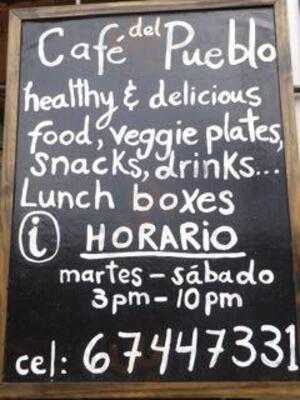 Café del Pueblo
healthy & delicious
food, veggie plates,
snacks, drinks...
Lunch boxes
i HORARIO
martes - sábado
3pm - 10pm
cel: 67447331